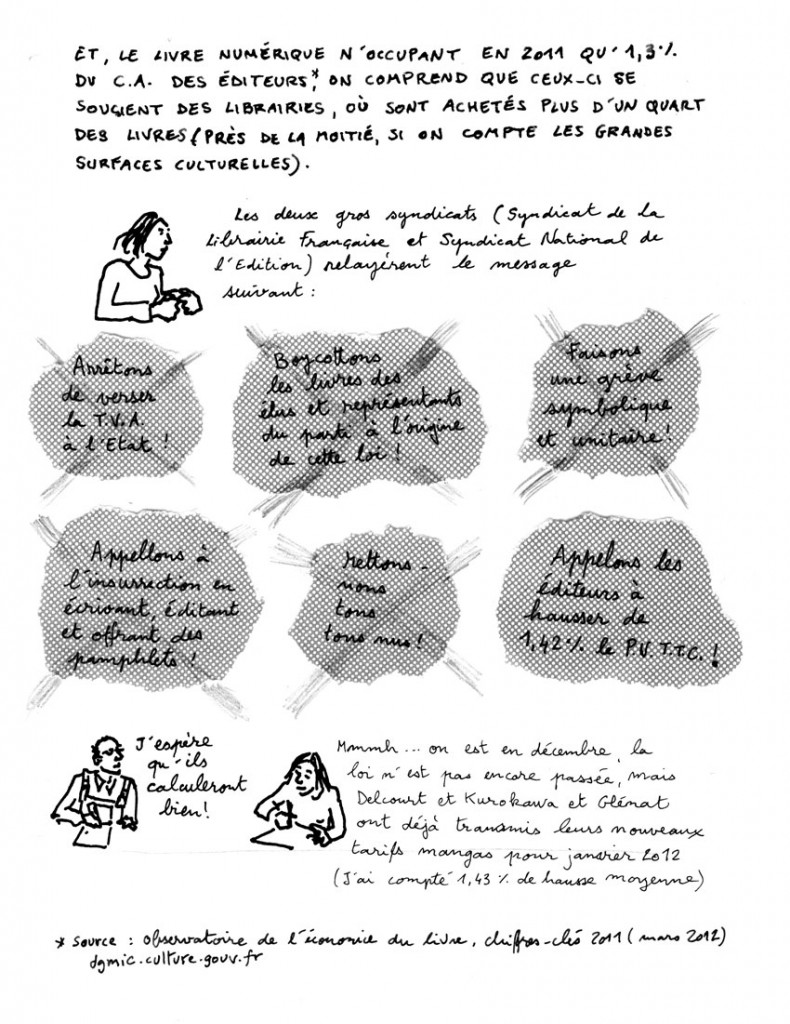 ET, LE LIVRE NUMÉRIQUE N'OCCUPANT EN 2011 QU'1,3%
DU C.A. DES ÉDITEURS*, ON COMPREND QUE CEUX-CI SE
SOUCIENT DES LIBRAIRIES, OÙ SONT ACHETÉS PLUS D'UN QUART
DES LIVRES (PRÈS DE LA MOITIÉ, SI ON COMPTE LES GRANDES
SURFACES CULTURELLES).
Les deux gros syndicats (Syndicat de la
Librairie Française et Syndicat National de
l'Edition) relayèrent le message
suivant :
Arrêtons
de verser
la T.V.A.
à l'Etat !
Boycottons
les livres des
élus et représentants
du parti à l'origine
de cette loi !
Faisons
une grève
symbolique
et unitaire !
Appellons à
l'insurrection en
écrivant, éditant
et offrant des
pamphlets !
Mettons-
nous
tous
tous nus !
Appelons les
éditeurs à
hausser de
1,42% le P.V.T.T.C. !
J'espère
qu'ils
calculeront
bien !
Mmmmh... on est en décembre, la
loi n'est pas encore passée, mais
Delcourt et Kurokawa et Glénat
ont déjà transmis leurs nouveaux
tarifs mangas pour janvier 2012
(J'ai compté 1,43% de hausse moyenne)
* Source : Observatoire de l'économie du livre, chiffres-clés 2011 (mars 2012)
dgmic.culture.gouv.fr